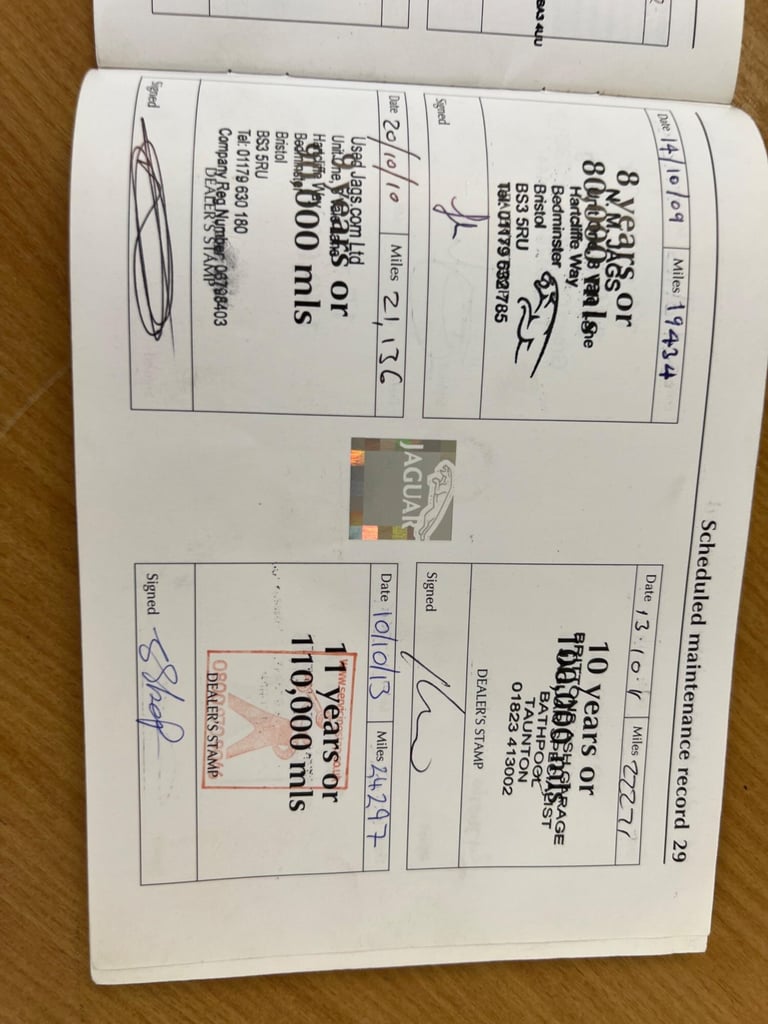 BA3 4UU
Scheduled maintenance record 29
Date 14/10/09 Miles 19434
8 years or
80,000 mls
N.M. JAGS
Hartcliffe Way
Bedminster
Bristol
BS3 5RU
Signed
Date 20/10/10 Miles 21,136
9 years or
90,000 mls
Used Jags.com Ltd
Hartcliffe Way
Bedminster
Bristol
BS3 5RU
Tel: 01179 630 180
Company Reg Number: 06798403
DEALER'S STAMP
Signed
JAGUAR
Date 13.10.11 Miles 22271
10 years or
100,000 mls
GARAGE
BATHPOOL
TAUNTON
01823 413002
DEALER'S STAMP
Signed
Date 10/10/13 Miles 24297
11 years or
110,000 mls
DEALER'S STAMP
Signed